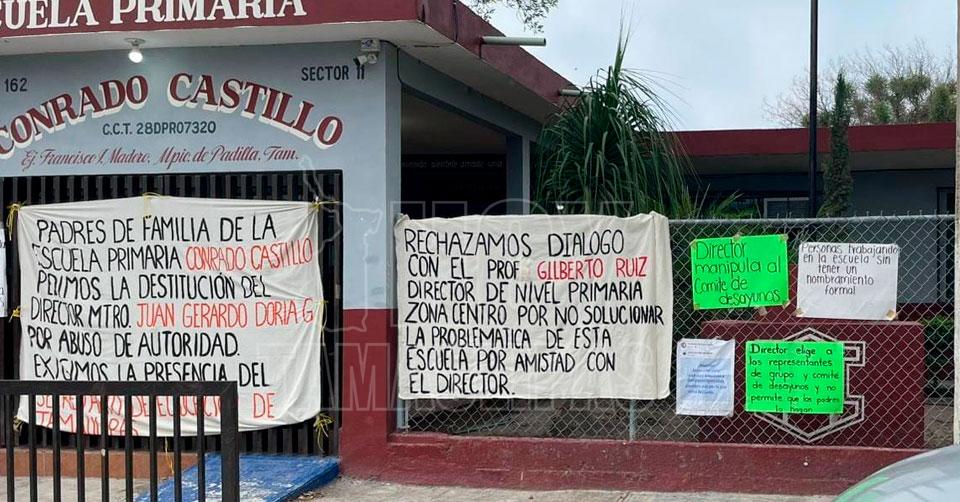 CUELA PRIMARIA
162
SECTOR 11
CONRADO CASTILLO
C.C.T. 28DPR07320
Ej. Francisco I. Madero, Mpio. de Padilla, Tam.
PADRES DE FAMILIA DE LA
ESCUELA PRIMARIA CONRADO CASTILLO
PEDIMOS LA DESTITUCIÓN DEL
DIRECTOR MTRO. JUAN GERARDO DORIA G
POR ABUSO DE AUTORIDAD.
EXIGIMOS LA PRESENCIA DEL
DE
RECHAZAMOS DIALOGO
CON EL PROF. GILBERTO RUIZ
DIRECTOR DE NIVEL PRIMARIA
ZONA CENTRO POR NO SOLUCIONAR
LA PROBLEMATICA DE ESTA
ESCUELA POR AMISTAD CON
EL DIRECTOR.
Director
manipula al
Comite de
desayunos
Personas trabajando
en la escuela sin
tener un
nombramiento
formal
Director elige a
los representantes
de grupo y comité
de desayunos y no
permite que los padres
lo hagan